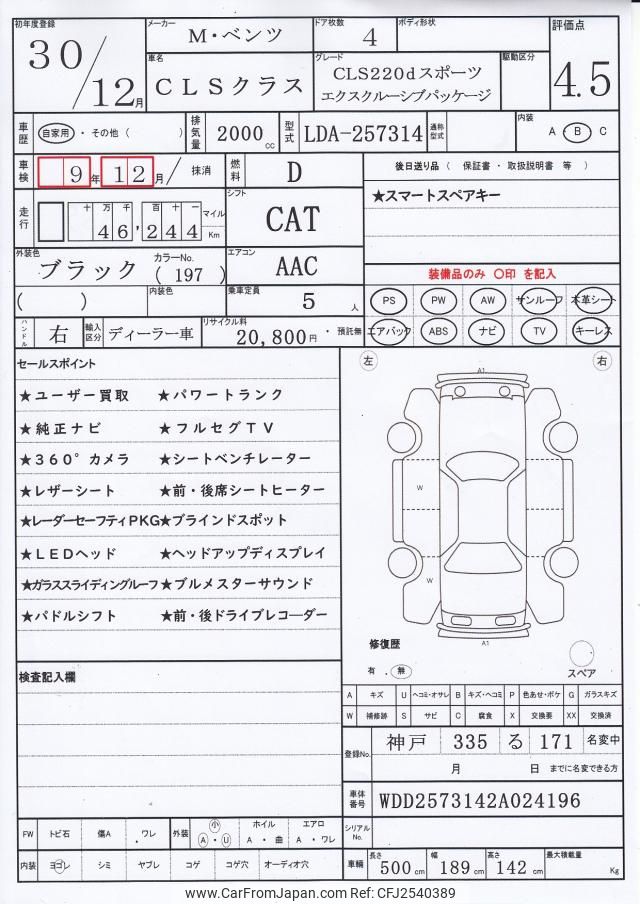 初年度登録 メーカー ドア枚数 ボディ形状 評価点
30/12月 M・ベンツ 4 4.5
車名 グレード 駆動区分
CLSクラス CLS220dスポーツ
エクスクルーシブパッケージ
車歴 自家用 ・ その他 ( ) 排気量 2000cc 型式 LDA-257314 通称型式 内装 A ・ B ・ C
車検 9年 12月 / 抹消 燃料 D 後日送り品 ( 保証書 ・ 取扱説明書 等 )
走行 十 万 千 百 十 一 マイル Km シフト
46,244 CAT ★スマートスペアキー
外装色 カラーNo. エアコン
ブラック ( 197 ) AAC 装備品のみ ○印 を記入
( ) 内装色 乗車定員 5 人 PS PW AW サンルーフ 本革シート
ハンドル 右 輸入区分 ディーラー車 リサイクル料 20,800円 ・ 預託無 エアバック ABS ナビ TV キーレス
セールスポイント 左 右
A1
★ユーザー買取 ★パワートランク
★純正ナビ ★フルセグTV
★360°カメラ ★シートベンチレーター
★レザーシート ★前・後席シートヒーター
W
★レーダーセーフティPKG★ブラインドスポット
★LEDヘッド ★ヘッドアップディスプレイ
★ガラススライディングルーフ★ブルメスターサウンド
W
★パドルシフト ★前・後ドライブレコーダー
A1
修復歴
有 . 無 スペア
検査記入欄
A キズ U ヘコミ・オサレ B キズ・ヘコミ P 色あせ・ボケ G ガラスキズ
W 補修跡 S サビ C 腐食 X 交換要 XX 交換済
登録No. 神戸 335 る 171 名変中
月 日 までに名変できる方
車体番号 WDD2573142A024196
FW トビ石 傷A ワレ 外装 小 A ・ U ホイル A ・ 曲 エアロ A ・ ワレ シリアルNo.
内装 ヨゴレ シミ ヤブレ コゲ コゲ穴 オーディオ穴 車輌 長さ 500cm 幅 189cm 高さ 142cm 最大積載量 Kg
www.CarFromJapan.com Ref: CFJ2540389